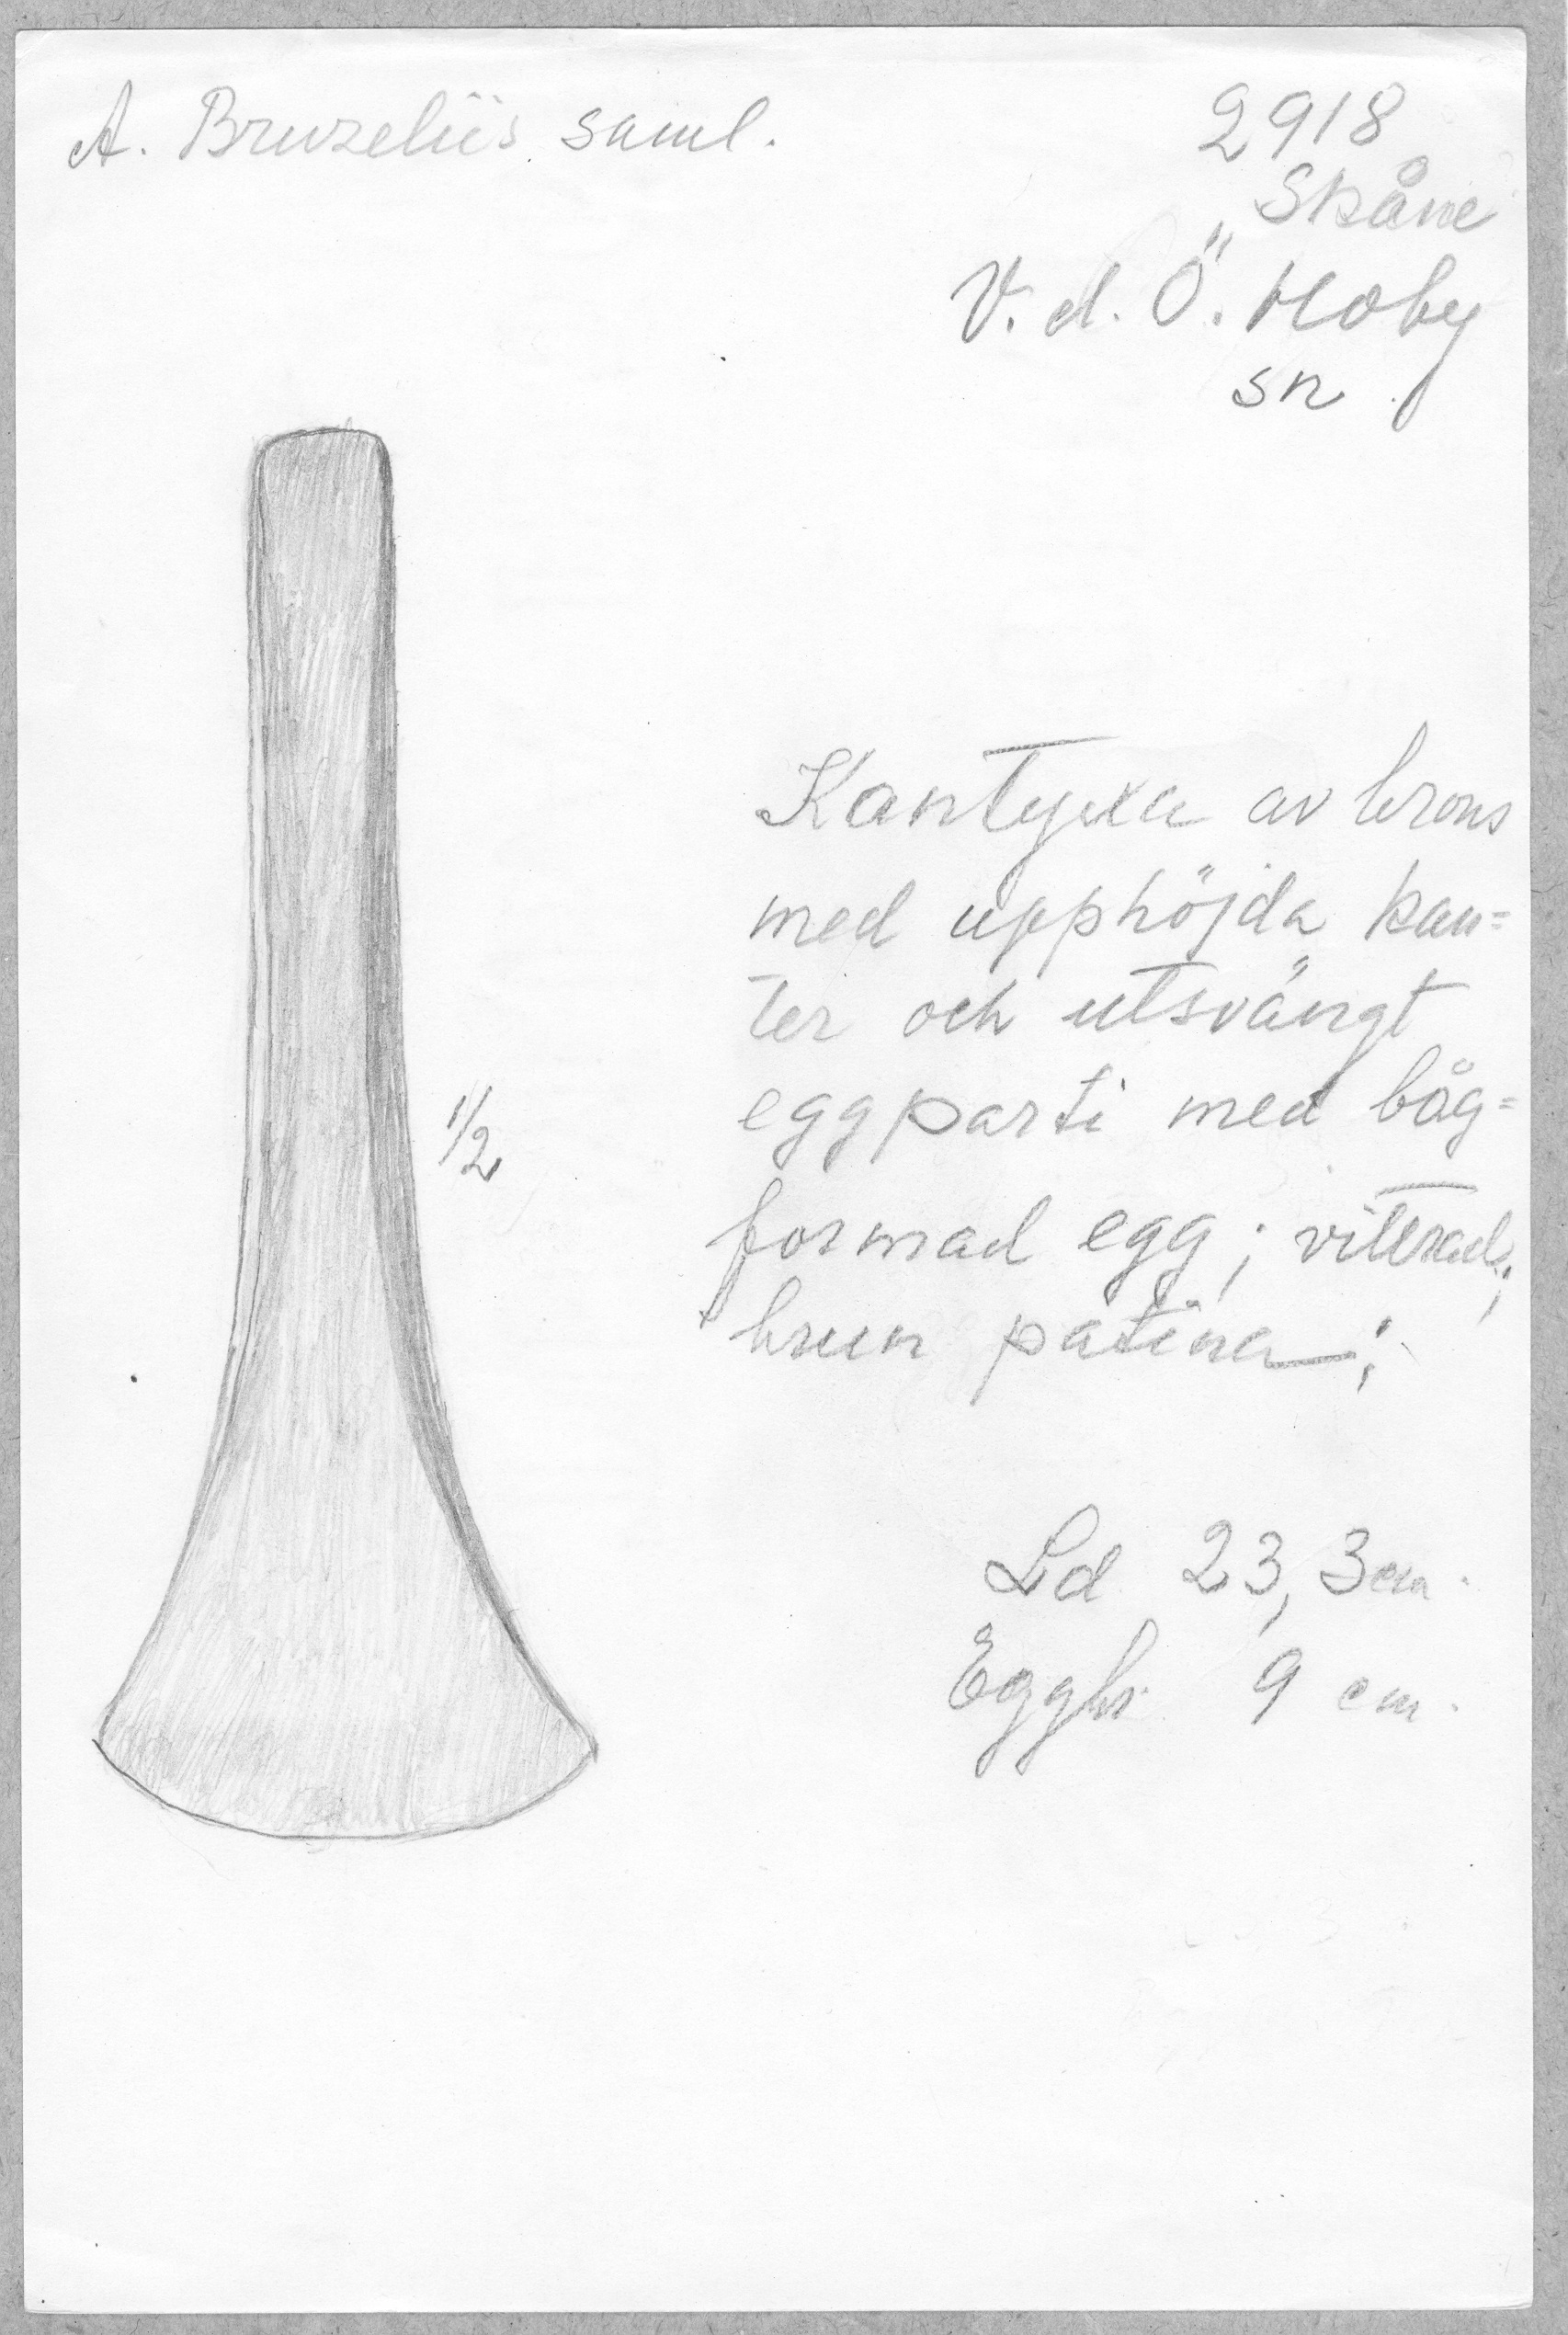 A. Bruzelii's saml.
2918
Skåne
V. d. Ö. Hoby
sn
Kantyxa av brons
med upphöjda kan=
ter och utsvängt
eggparti med båg=
formad egg; vittrad;
brun patina;
1/2
Ld 23,3 cm.
Eggbr. 9 cm.